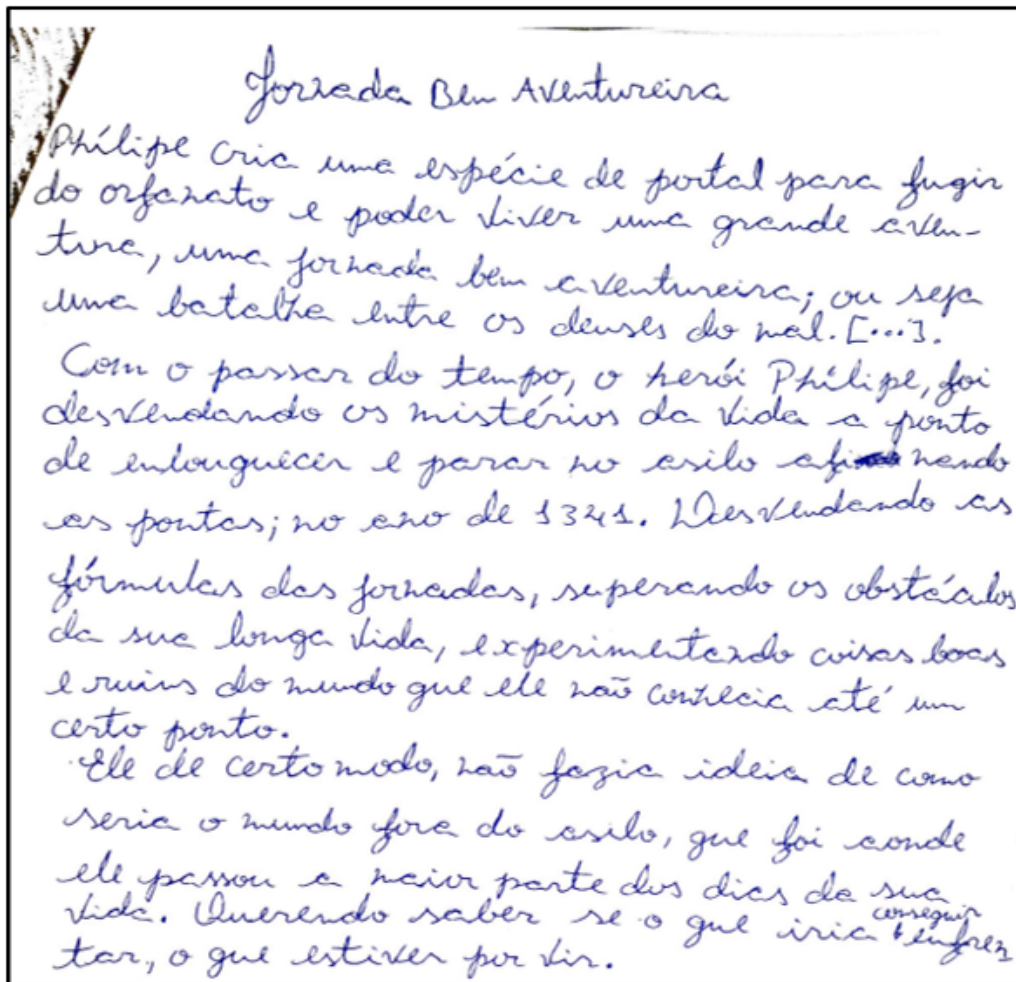 Jornada Bem Aventureira
Phílipe cria uma espécie de portal para fugir
do orfanato e poder viver uma grande aven-
tura, uma jornada bem aventureira; ou seja
uma batalha entre os deuses do mal. [...].
Com o passar do tempo, o herói Phílipe, foi
desvendando os mistérios da vida a ponto
de enlouquecer e parar no asilo afinando
as pontas; no ano de 1341. Desvendando as
fórmulas das jornadas, superando os obstáculos
da sua longa vida, experimentando coisas boas
e ruins do mundo que ele não conhecia até um
certo ponto.
Ele de certo modo, não fazia ideia de como
seria o mundo fora do asilo, que foi aonde
ele passou a maior parte dos dias da sua
vida. Querendo saber se o que iria conseguir enfren
tar, o que estiver por vir.